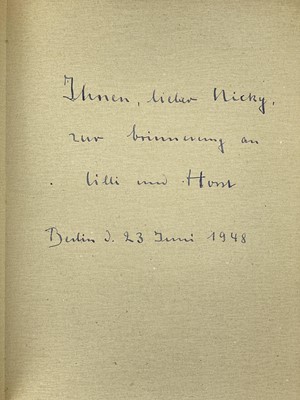 Ihnen, lieber Nicky,
zur Erinnerung an
Lilli und Horst
Berlin d. 23 Juni 1948